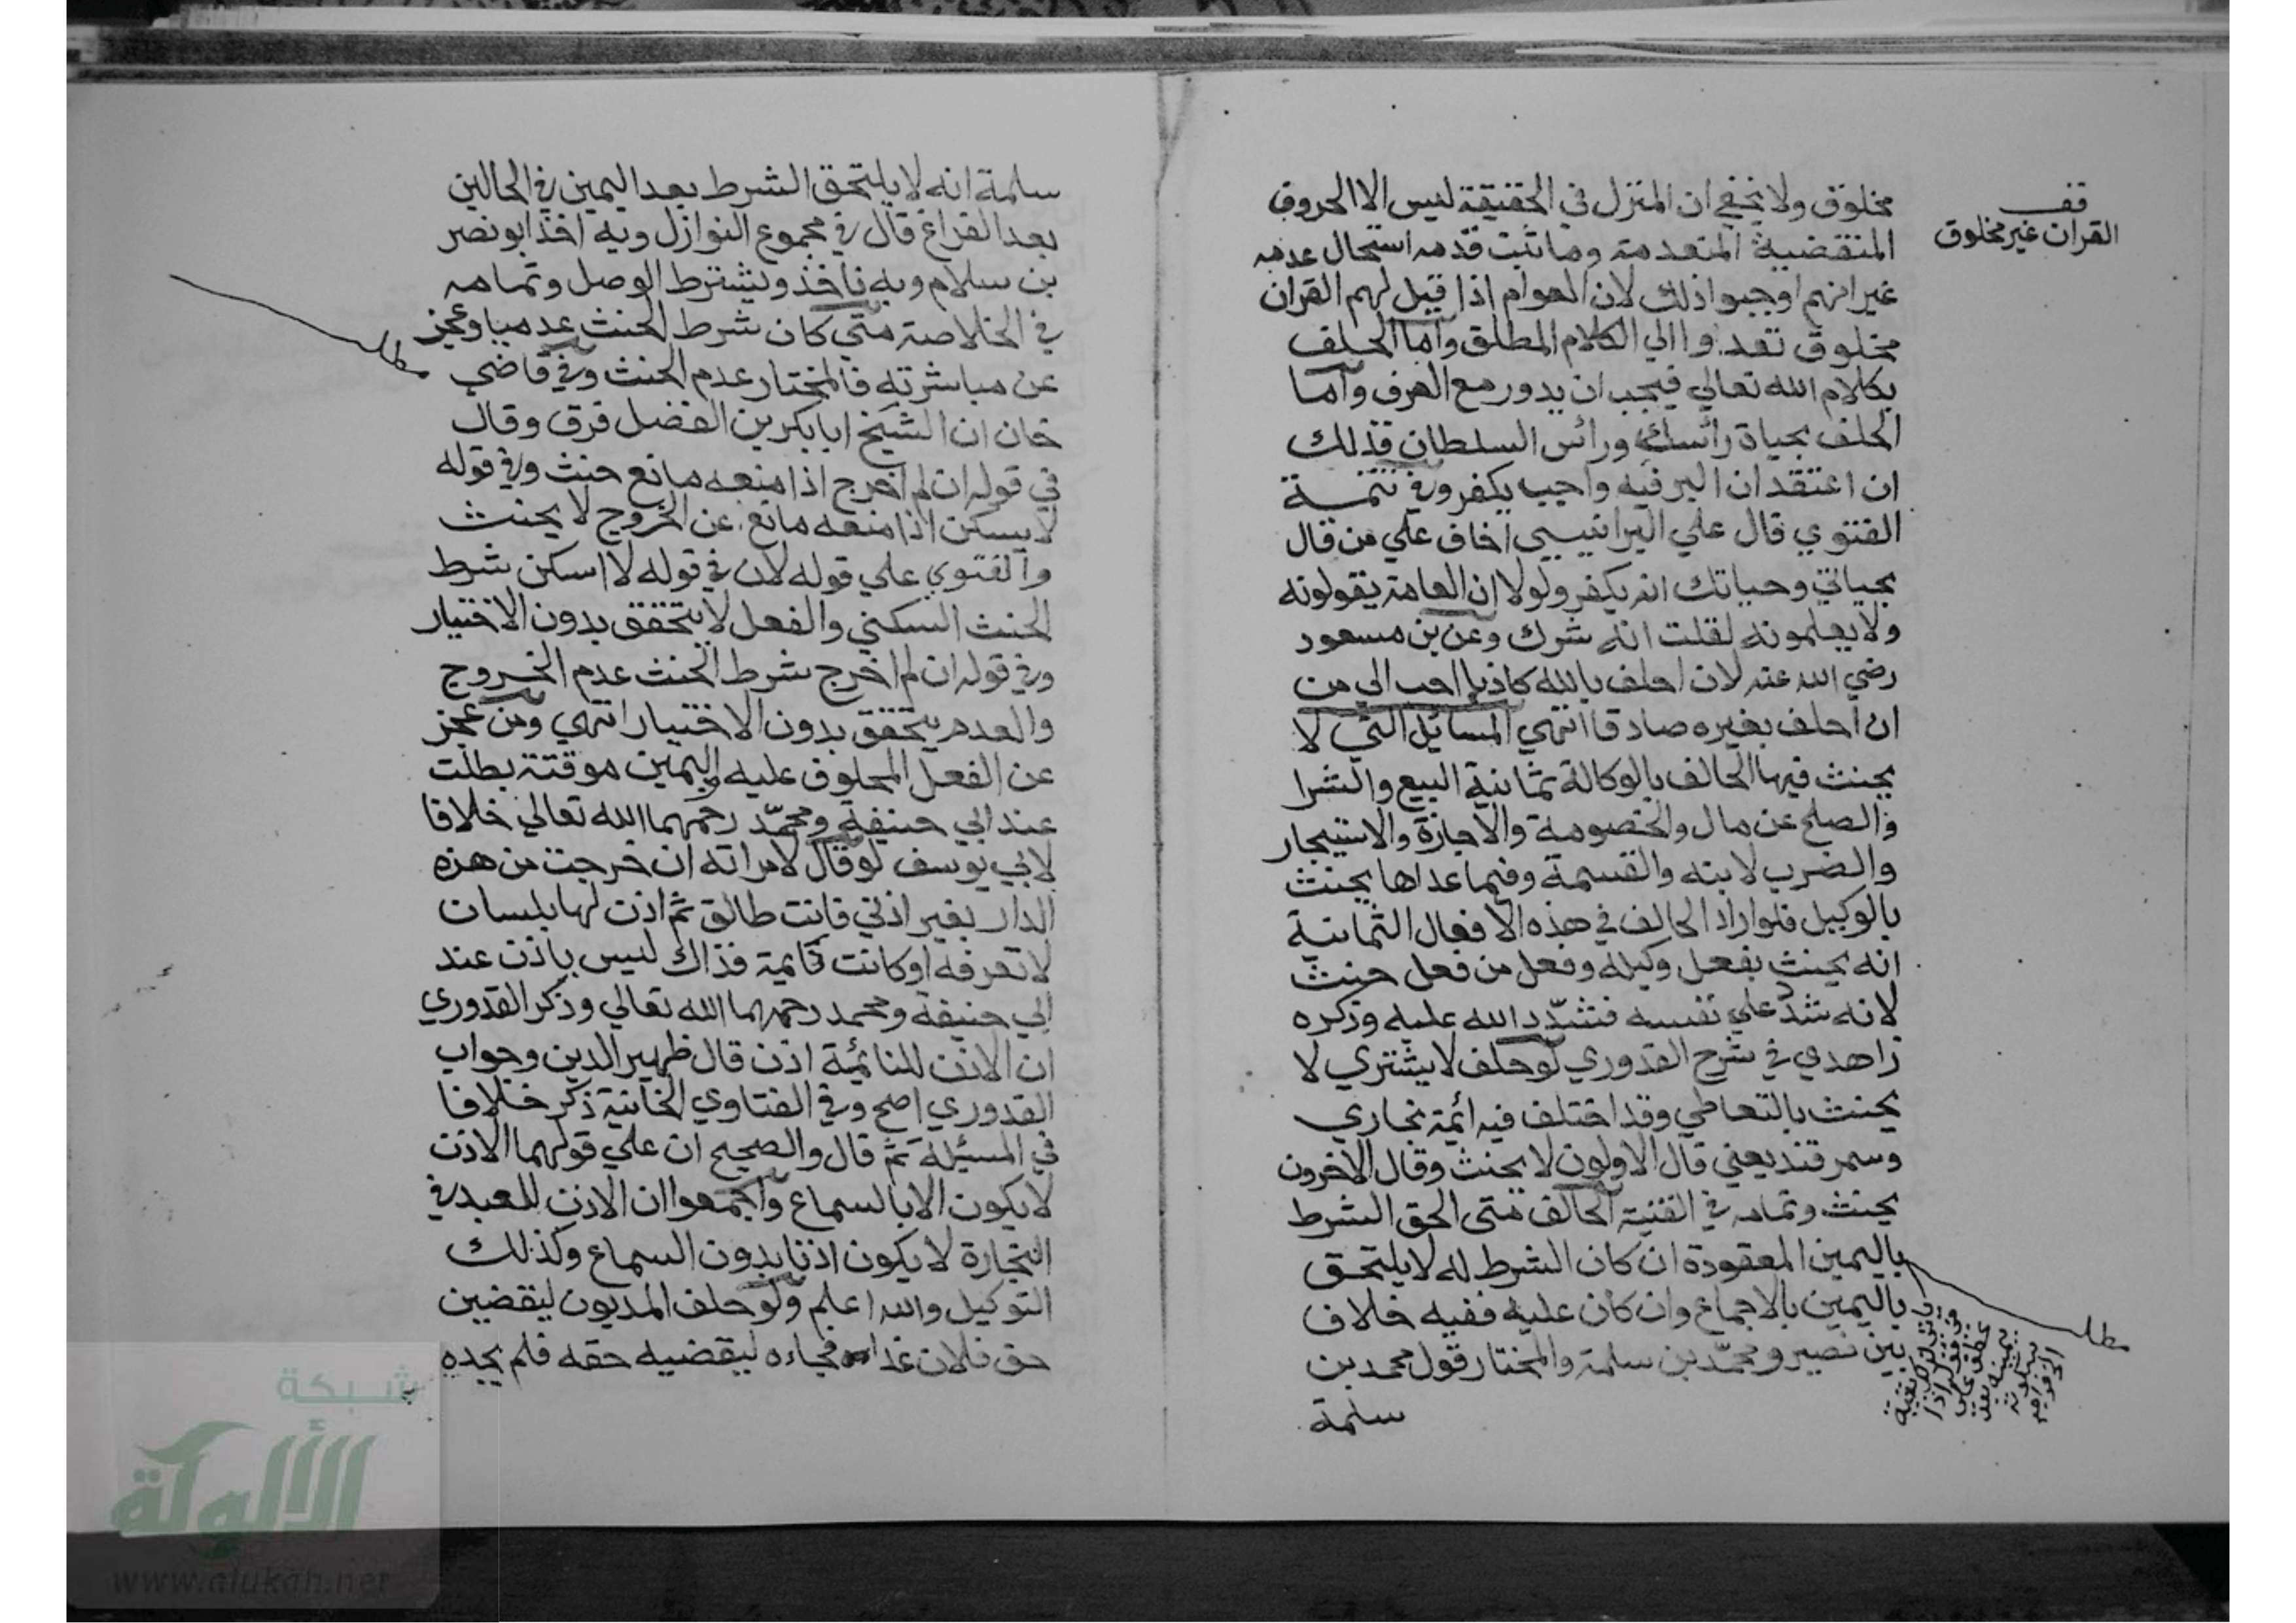 قف
القران غير مخلوق
مخلوق ولا يخفي ان المنزل في الحقيقة ليس الا الحروف
المنقضية المنعدمة وما ثبت قدمه استحال عدمه
غير انهم اوجبوا ذلك لان العوام اذا قيل لهم القران
مخلوق تعدوا الي الكلام المطلق واما الحلف
بكلام الله تعالي فيجب ان يدور مع العرف واما
الحلف بحياة رأسك ورائس السلطان فذلك
ان اعتقد ان البر فيه واجب يكفر وفي تتمة
الفتوي قال علي الرازي اخاف علي من قال
بحياتي وحياتك انه يكفر ولولا ان العامة يقولونه
ولا يعلمونه لقلت انه شرك وعن بن مسعود
رضي الله عنه لان احلف بالله كاذبا احب الي من
ان احلف بغيره صادقا انتهي المسائل التي لا
يحنث فيها الحالف بالوكالة ثمانية البيع والشرا
والصلح عن مال والخصومة والاجازة والاستيجار
والضرب لابنه والقسمة وفيما عداها يحنث
بالوكيل فلو اراد الحالف في هذه الافعال الثمانية
انه يحنث بفعل وكيله وفعل من فعل حنث
لانه شدد علي نفسه فشدد الله عليه وذكره
زاهدي في شرح القدوري لو حلف لا يشتري لا
يحنث بالتعاطي وقد اختلف فيه ائمة بخاري
وسمرقند يعني قال الاولون لا يحنث وقال الاخرون
يحنث وتمامه في القنية الحالف متي الحق الشرط
باليمين المعقودة ان كان الشرط له لا يلتحق
باليمين بالاجماع وان كان عليه ففيه خلاف
بين نصير ومحمد بن سلمة والمختار قول محمد بن
سلمة
مطلب
سلمة انه لا يلتحق الشرط بعد اليمين في الحالين
بعد الفراغ قال في مجموع النوازل وبه اخذ ابو نصر
بن سلام وبه ناخذ ويشترط الوصل وتمامه
في الخلاصة متي كان شرط الحنث عدميا وعجز
مطلب
عن مباشرته فالمختار عدم الحنث وفي قاضي
خان ان الشيخ ابا بكر بن الفضل فرق وقال
في قوله ان لم اخرج اذا منعه مانع حنث وفي قوله
لا يسكن اذا منعه مانع عن الخروج لا يحنث
والفتوي علي قوله لان في قوله لا اسكن شرط
الحنث السكني والفعل لا يتحقق بدون الاختيار
وفي قوله ان لم اخرج شرط الحنث عدم الخروج
والعدم يتحقق بدون الاختيار انتهي ومن عجز
عن الفعل المحلوف عليه واليمين موقتة بطلت
عند ابي حنيفة ومحمد رحمهما الله تعالي خلافا
لابي يوسف لو قال لامراته ان خرجت من هذه
الدار بغير اذني فانت طالق ثم اذن لها بلسان
لا تعرفه او كانت نايمة فذاك ليس باذن عند
ابي حنيفة ومحمد رحمهما الله تعالي وذكر القدوري
ان الاذن للنائمة اذن قال ظهير الدين وجواب
القدوري اصح وفي الفتاوي الخانية ذكر خلافا
في المسئلة ثم قال والصحيح ان علي قولهما الاذن
لا يكون الا بالسماع واجمعوا ان الاذن للعبد في
التجارة لا يكون اذنا بدون السماع وكذلك
التوكيل والله اعلم ولو حلف المديون ليقضين
حق فلان غدا فجاءه ليقضيه حقه فلم يجده
شبكة
الألوكة
www.alukah.net